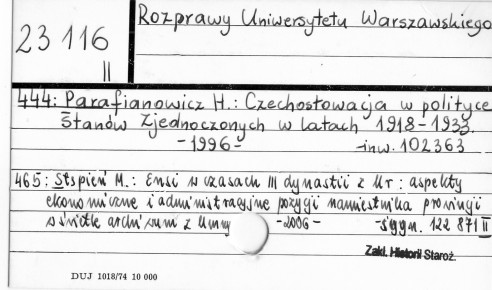 23 116
II
Rozprawy Uniwersytetu Warszawskiego
444: Parafianowicz H.: Czechosłowacja w polityce
Stanów Zjednoczonych w latach 1918-1933.
-1996- -inw. 102363
465: Stępień M.: Ensi w czasach III dynastii z Ur: aspekty
ekonomiczne i administracyjne pozycji namiestnika prowincji
w świetle archiwum z Ummy -2006- -sygn. 122 871 II
Zakł. Historii Staroż.
DUJ 1018/74 10 000